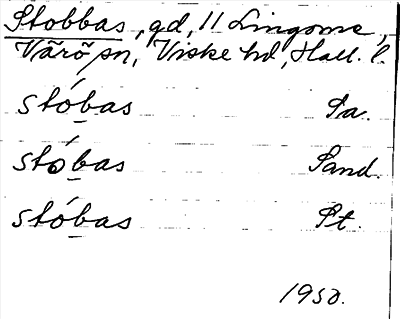 Stobbas, gd, 11 Lingome,
Värö sn, Viske hd, Hall. l.
stóbas Pa.
stóbas Sand.
stóbas Pt.
1950.